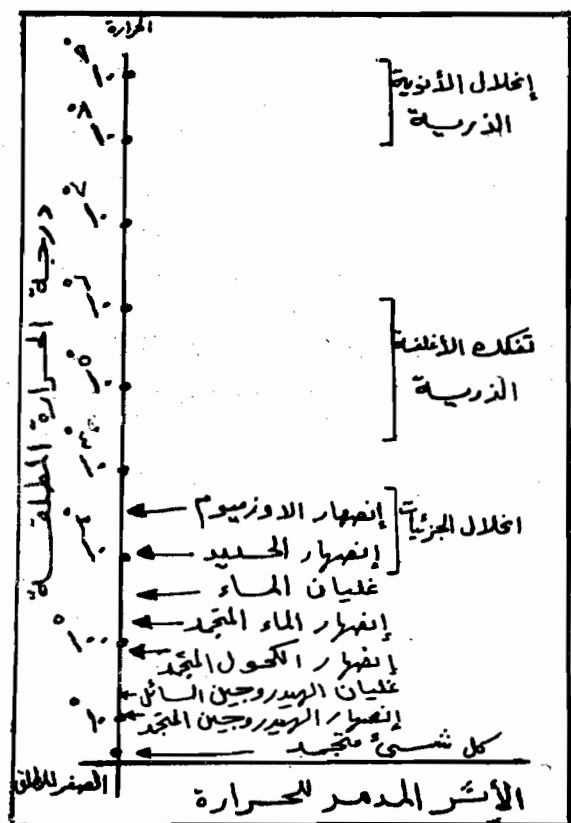 الحرارة
درجة الحرارة المطلقة
١٠^٩°
١٠^٨°
١٠^٧°
١٠^٦°
١٠^٥°
١٠^٤°
١٠^٣°
١٠٠°
١٠°
إنحلال الأنوية
الذرية
تفكك الأغلفة
الذرية
انحلال الجزئيات
إنصهار الاوزميوم
إنصهار الحديد
غليان الماء
إنصهار الماء المتجمد
إنصهار الكحول المتجمد
غليان الهيدروجين السائل
إنصهار الهيدروجين المتجمد
كل شىء متجمد
الصفر المطلق
الأثر المدمر للحرارة